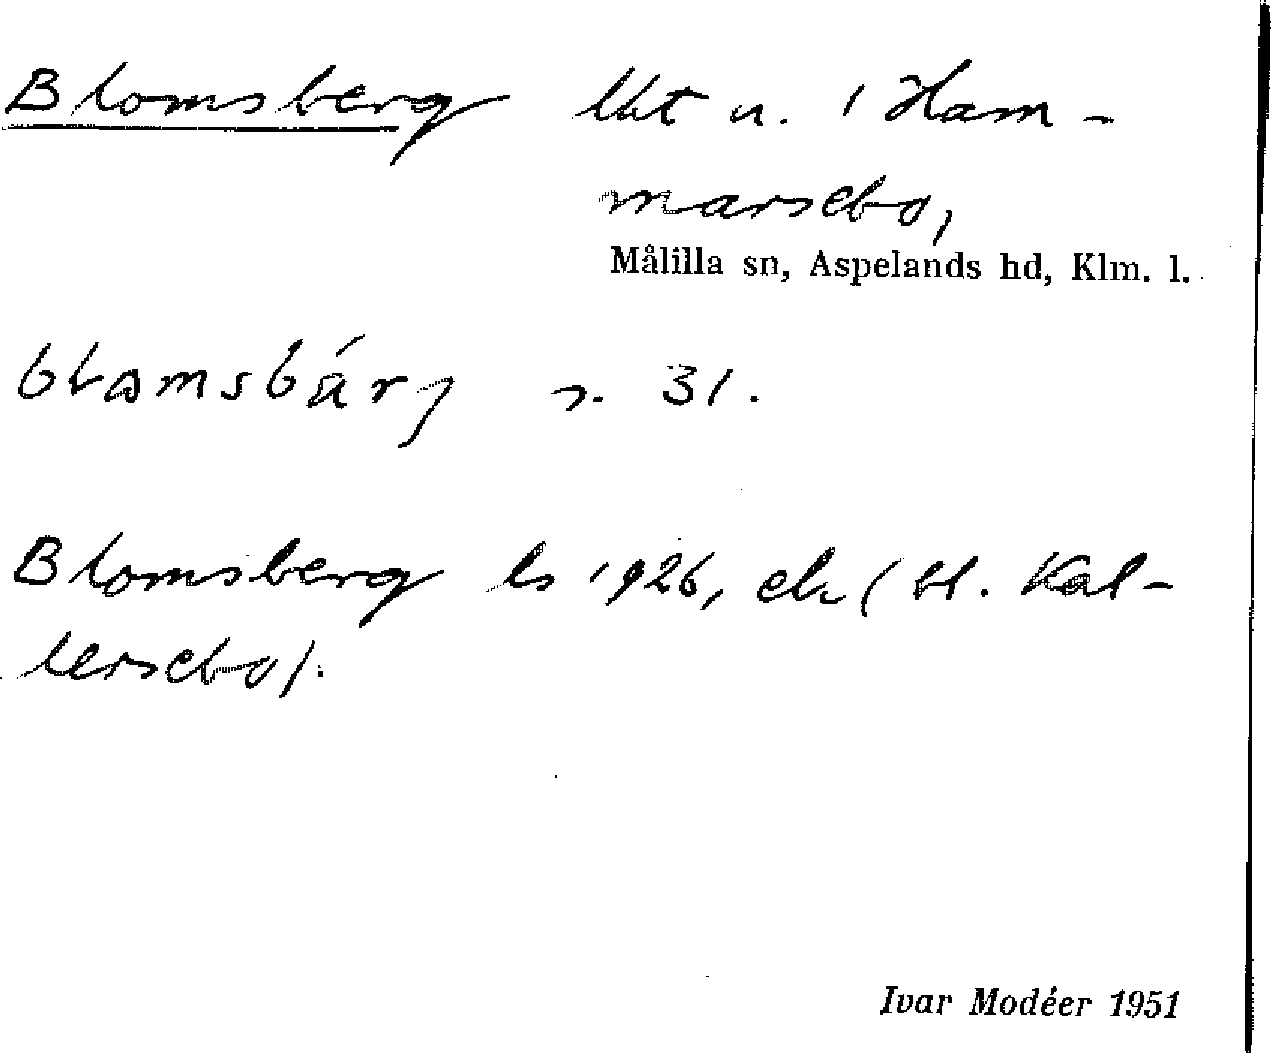 Blomsberg lht n. i Ham-
marsebo,
Målilla sn, Aspelands hd, Klm. l.
s. 31.
Blomsberg ls 1926, ek (bl. Kal-
lersebo).
Ivar Modéer 1951